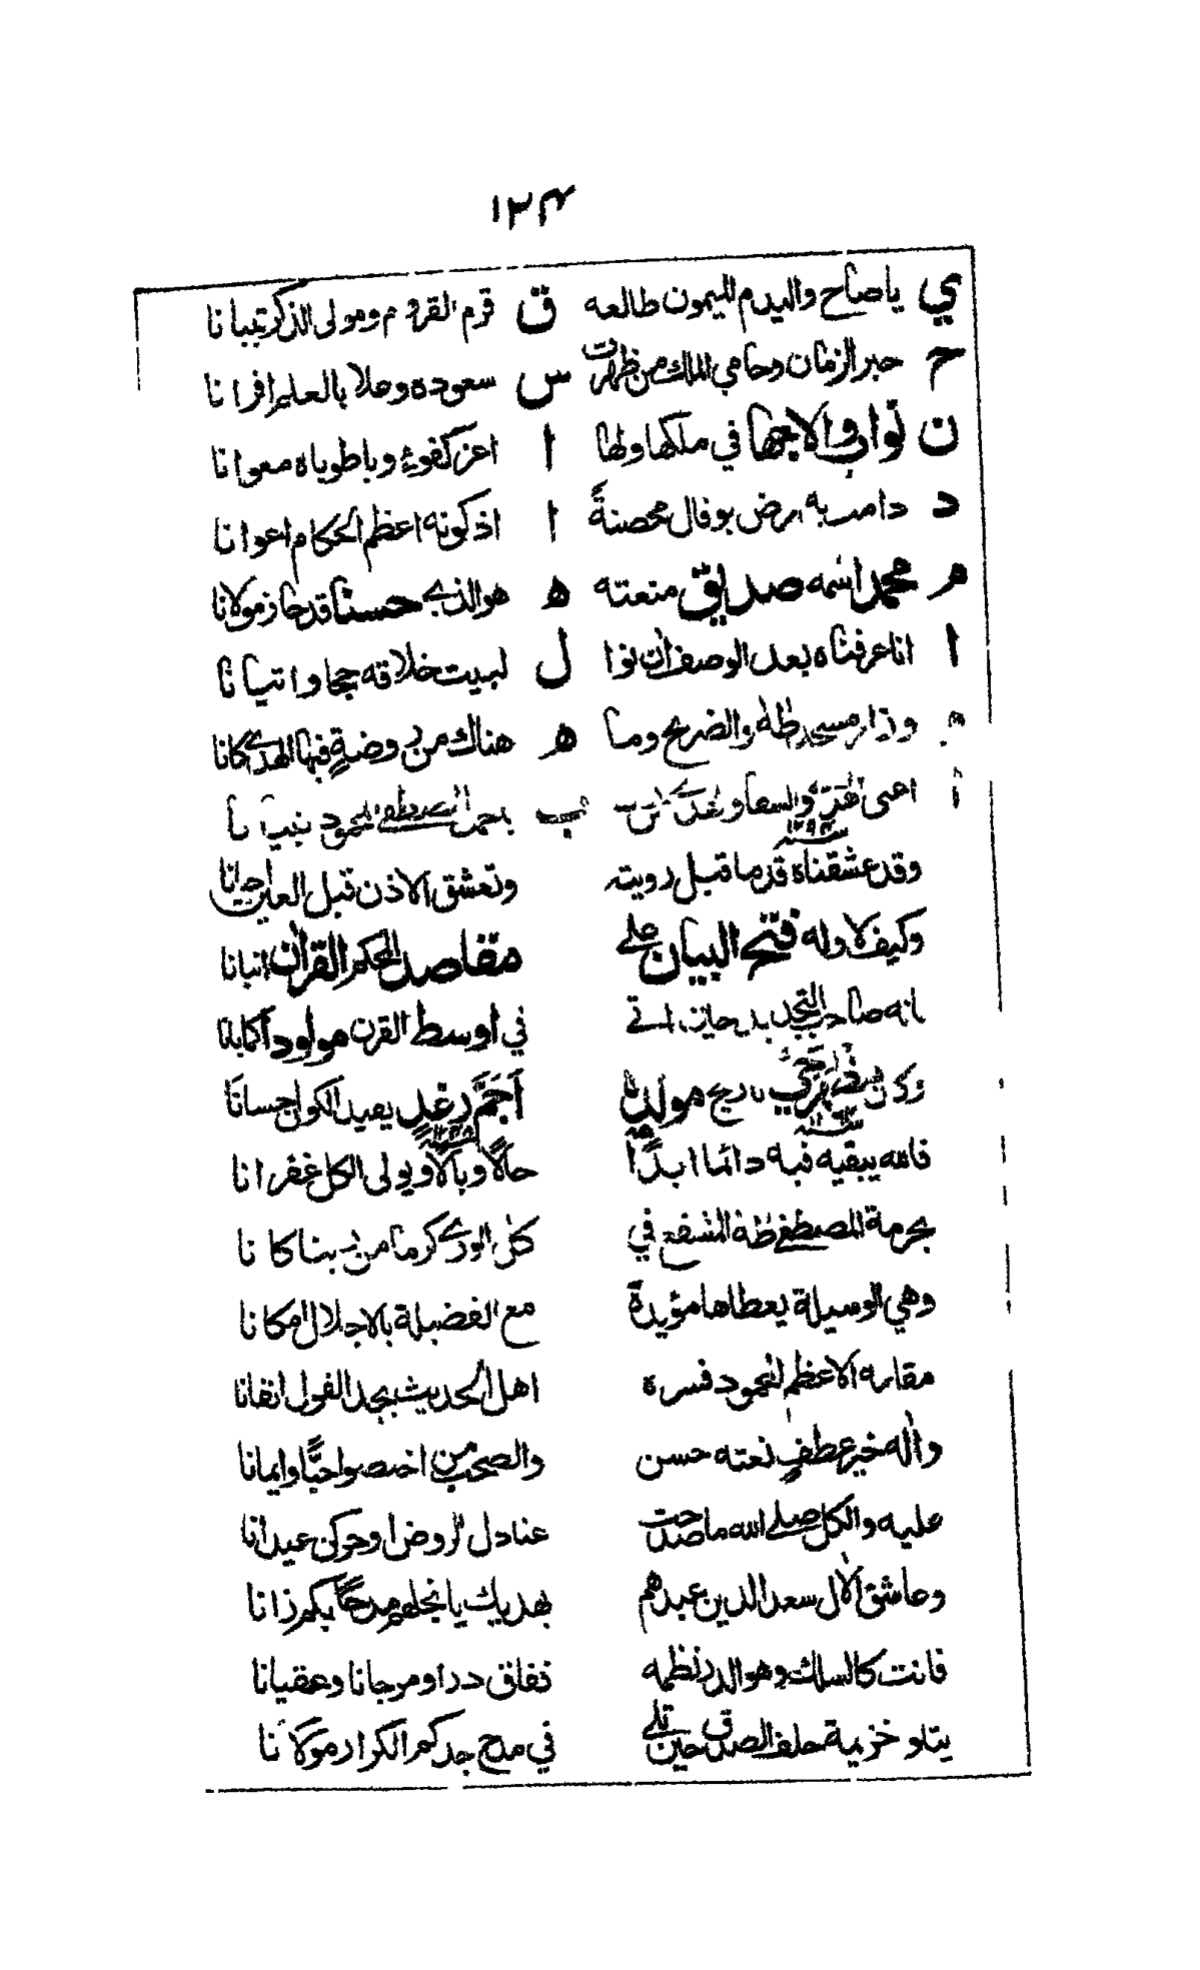 ١٣٤
ي يا صاح والبدر الميمون طالعه ق قرم القروم ومولى الذكر تبيانا
ح حبر الزمان وحامي الملك من ظهرت س سعوده وعلا بالعلم اقرانا
ن نواب والاجها في ملكها ولها ا اعز كفوء وبا طوباه معوانا
د دامت به ارض بوفال محصنةً ا اذ كونه اعظم الحكام اعوانا
م محمد اسمه صديق منعته ه هو الذي حسنا قد حاز مولانا
ا انا عرفناه بعد الوصف ان نوا ل لبيت خلاقه حجا واتيانا
و وزار مسجد طه والضريح وما ه هناك من روضةٍ فيها الهدى كانا
ا اعنى والسعا ب بحمد المصطفى المحمود
وقد عشقناه قدما قبل رويته وتعشق الاذن قبل العين احيانا
وكيف لا وله فتح البيان على مقاصد المحكم القرآن انبانا
انه صاحب التجديد حيث اتى في اوسط القرن مولود
تاريخ مولده أجَمَّ رغد يعيد الكل احسانا
فالله يبقيه فيه دائما ابدًا حالًا وبالًا ويولى الكل غفرانا
بحرمة المصطفى طه المشفع في كل الورى كرما من ربنا كانا
وهي الوسيلة يعطاها مؤيدة مع الفضيلة بالاجلال امكانا
مقامه الاعظم المحمود فسره اهل الحديث بجد القول اتقانا
واله خير عطفٍ نعته حسن والصحب من اخلصوا حبًّا وايمانا
عليه والكل صلى الله ما صدحت عنادل الروض او حركن عيدانا
وعاشق الآل سعد الدين عبدهم يهديك يا نجلهم مدحًا بكم زانا
فانت كالسلك وهو الدر نظمه نفاق درا ومرجانا وعقيانا
يتلو خزيمة حلف الصدق حين تلى في مدح جدكم الكرار مولانا